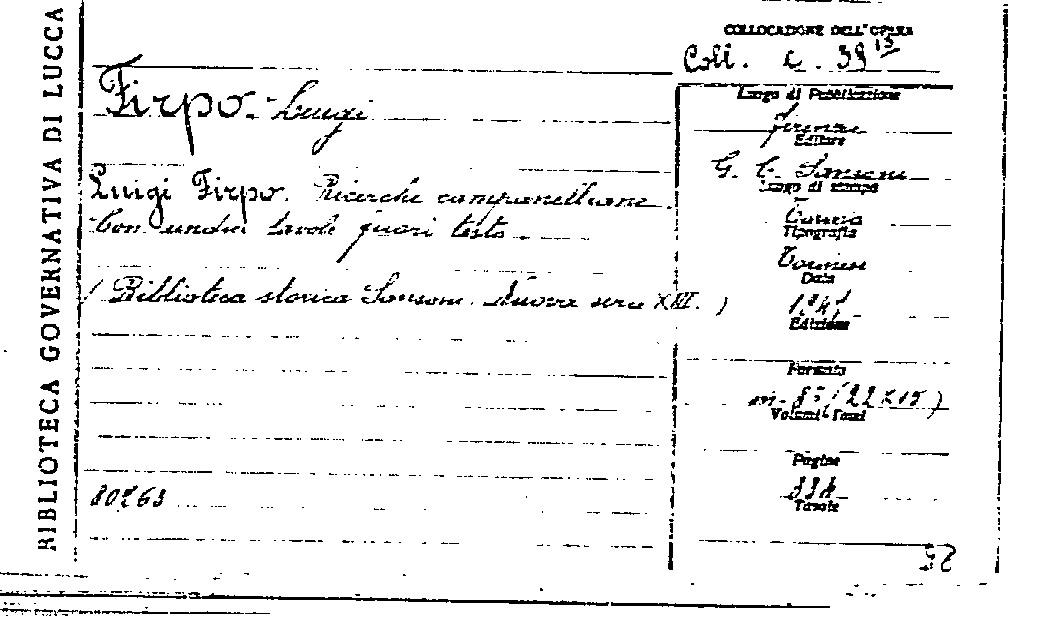 BIBLIOTECA GOVERNATIVA DI LUCCA
COLLOCAZIONE DELL'OPERA
Coll. c. 39 15
Firpo. Luigi
Luigi Firpo. Ricerche campanelliane.
Con undici tavole fuori testo
(Biblioteca storica Sansoni. Nuova serie XIII.)
Luogo di Pubblicazione
Firenze
Editore
G. C. Sansoni
Luogo di stampa
Tipografia
Data
Edizione
Formato
in-8° (22x15)
Volumi-Tomi
Pagine
334
Tavole